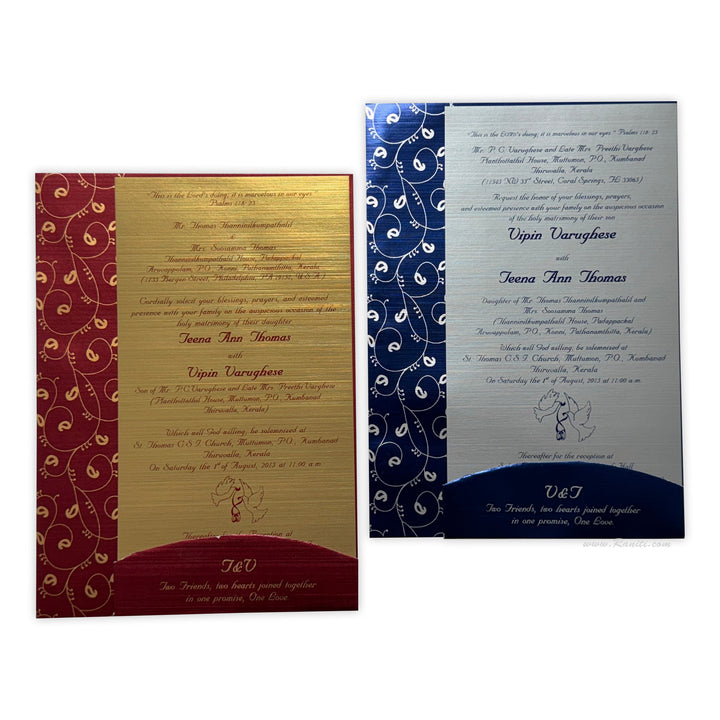 "This is the Lord's doing; it is marvelous in our eyes."
Psalms 118: 23
Mr. Thomas Thanninilkumpathalil
&
Mrs. Soosamma Thomas
(Thannindilkumpathalil House, Patappackal
Aruvappolam, P.O., Konni Pathanamthitta, Kerala
Street, Philadelphia, PA
Cordially solicit your blessings, prayers, and esteemed
presence with your family on the auspicious occasion of the
holy matrimony of their daughter
Teena Ann Thomas
with
Vipin Varughese
Son of Mr. P.C. Varughese and Late Mrs. Preethi Varghese
House, Muttumon, P.O., Kumbanad
Thiruvalla, Kerala)
Which will God willing, be solemnized at
St. Thomas C.S.I. Church, Muttumon, P.O., Kumbanad
Thiruvalla, Kerala
On Saturday the 1st of August, 2015 at 11:00 a.m
Thereafter for the reception at
T&V
Two Friends, two hearts joined together
in one promise, One Love.
"This is the LORD's doing; it is marvelous in our eyes." Psalms 118: 23
Mr. P. C. Varughese and Late Mrs. Preethi Varghese
House, Muttumon, P.O., Kumbanad
Thiruvalla, Kerala
Street, Coral Springs, FL 33065)
Request the honor of your blessings, prayers,
and esteemed presence with your family on the auspicious occasion
of the holy matrimony of their son
Vipin Varughese
with
Teena Ann Thomas
Daughter of Mr. Thomas Thannindilkumpathalil and
Mrs. Soosamma Thomas
(Thannindilkumpathalil House, Patappackal
Aruvappolam, P.O., Konni, Pathanamthitta, Kerala)
Which will God willing, be solemnized at
St. Thomas C.S.I. Church, Muttumon, P.O., Kumbanad
Thiruvalla, Kerala
On Saturday the 1st of August, 2015 at 11:00 a.m.
Thereafter for the reception at
Hall
V&T
Two Friends, two hearts joined together
in one promise, One Love.
www.Raniti.com